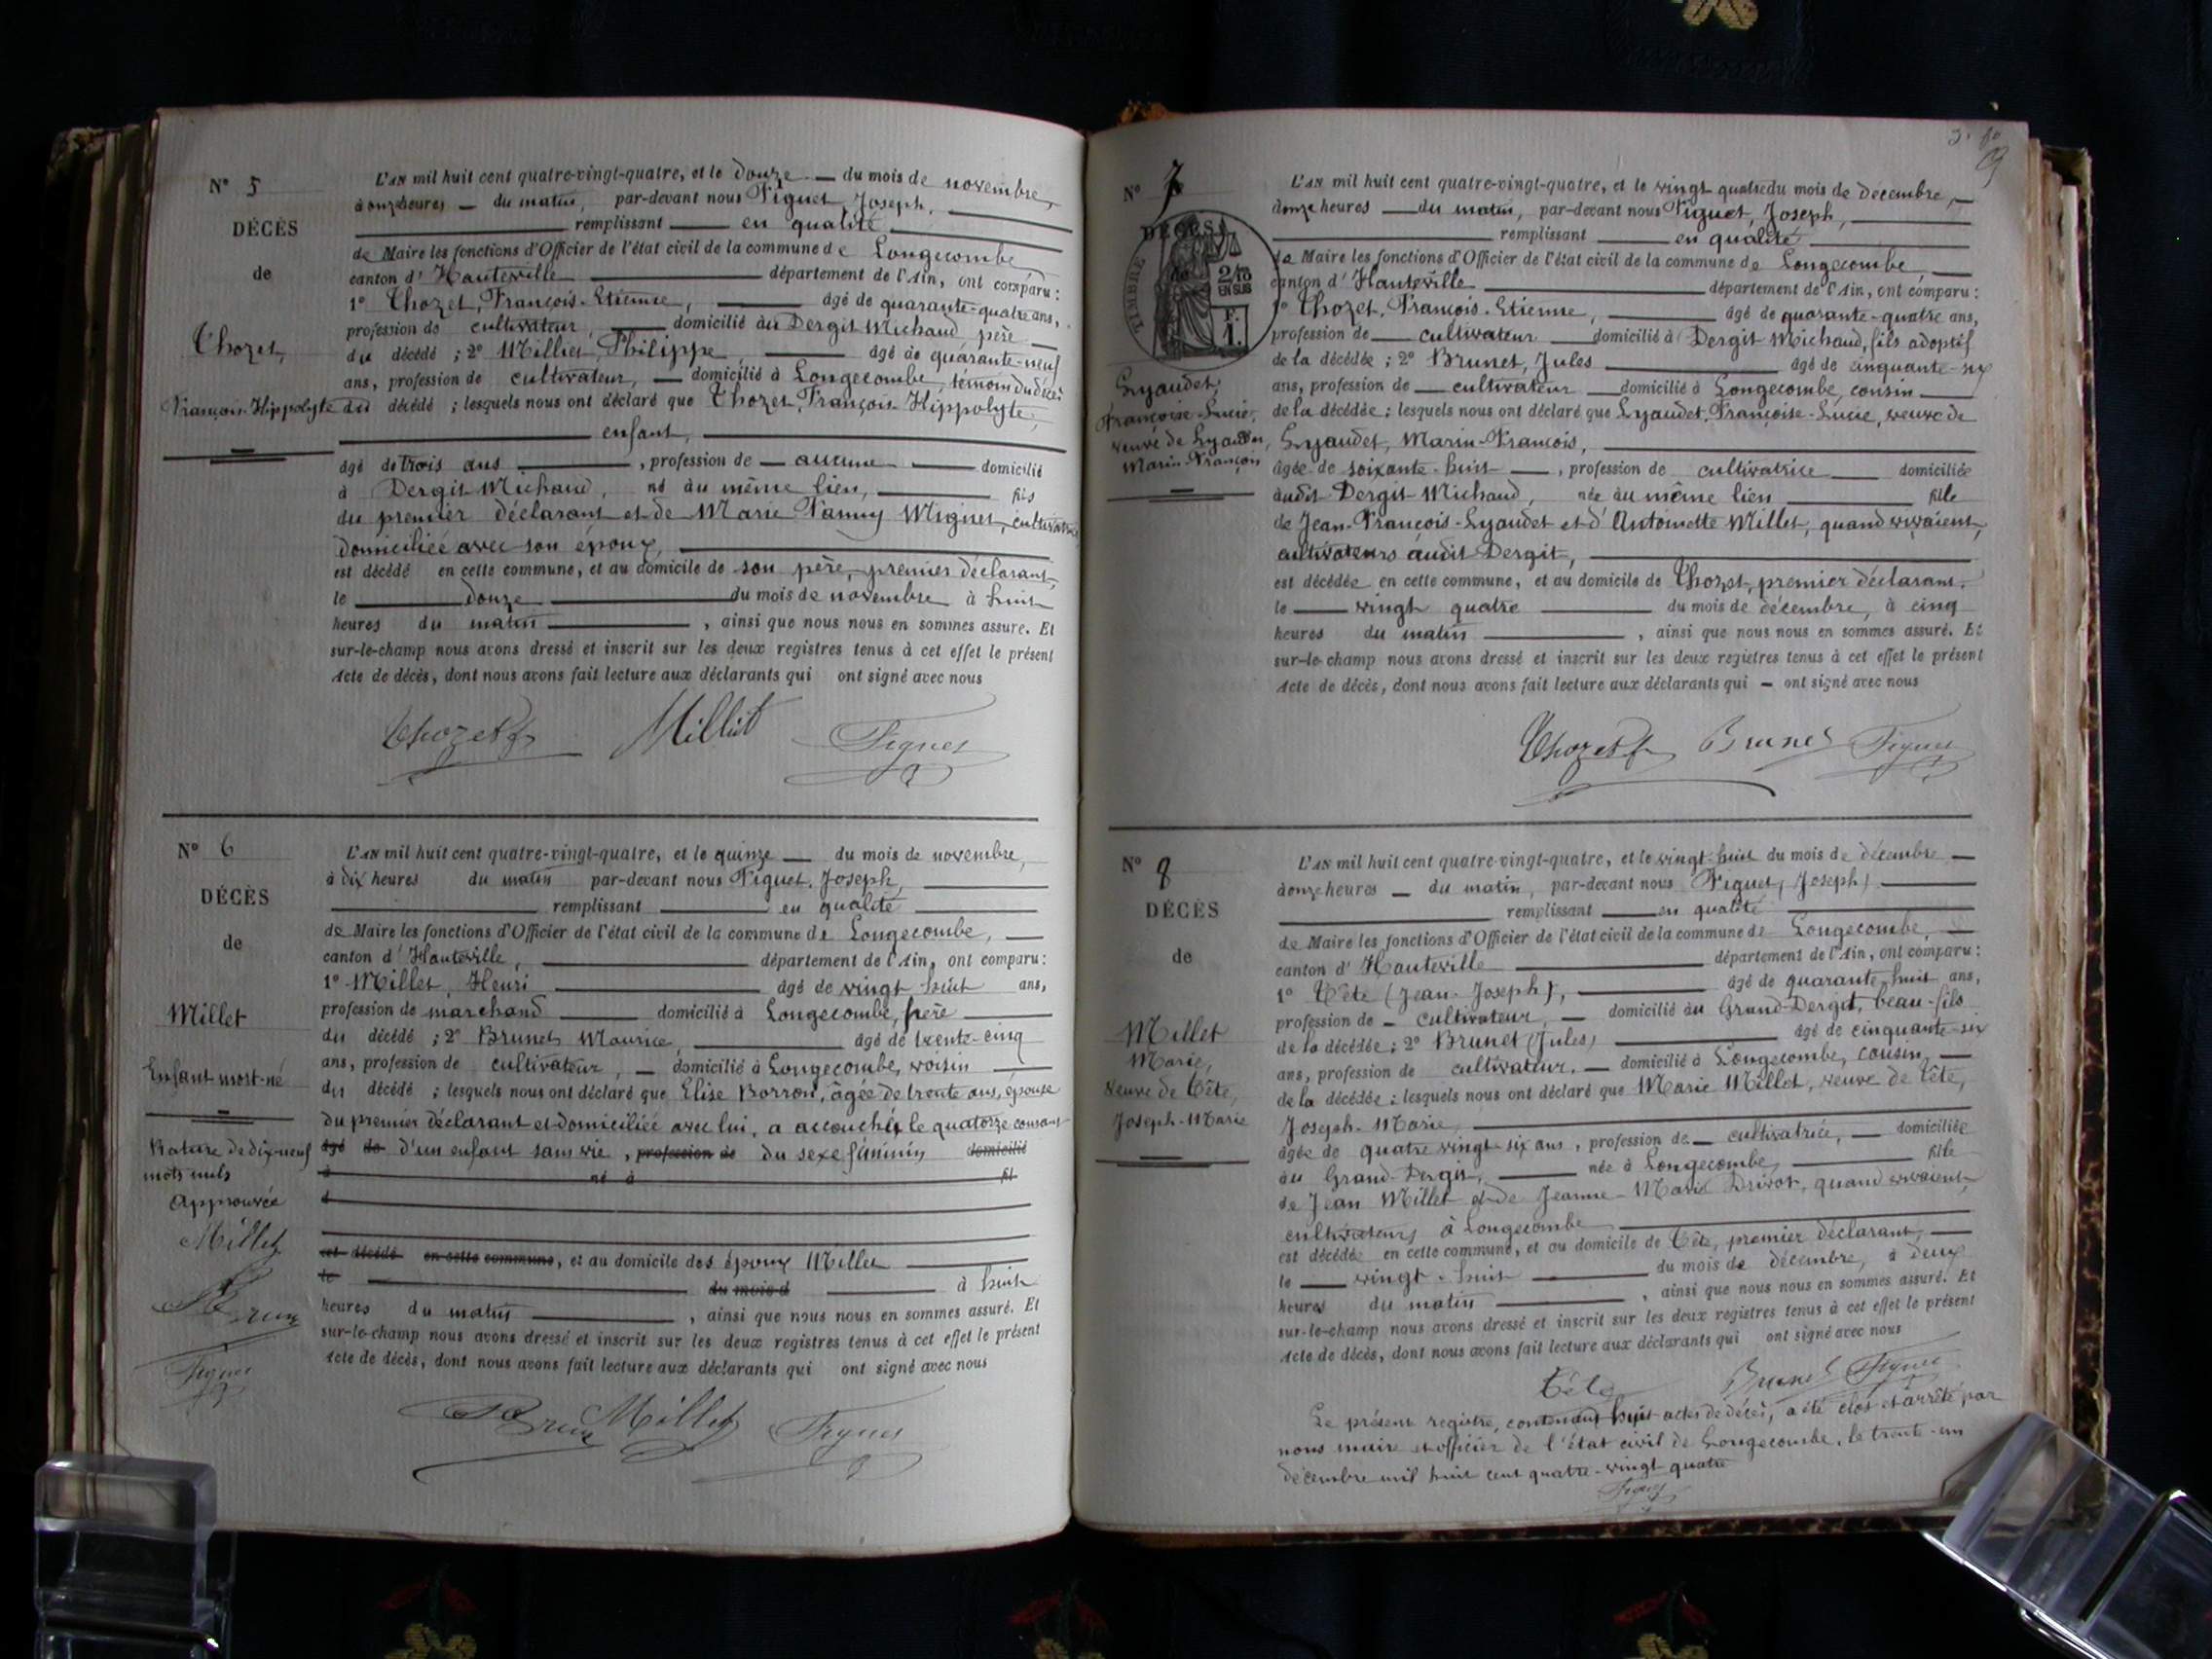 N° 5
DÉCÈS
de
Thozet,
François-Hippolyte
L'AN mil huit cent quatre-vingt-quatre, et le douze du mois de novembre,
à onze heures du matin, par-devant nous Piguet, Joseph,
remplissant en qualité
de Maire les fonctions d'Officier de l'état civil de la commune de Longecombe
canton d'Hauteville département de l'Ain, ont comparu :
1° Thozet, François-Etienne, âgé de quarante-quatre ans,
profession de cultivateur, domicilié au Dergit Michaud, père
du décédé ; 2° Milliet, Philippe, âgé de quarante-neuf
ans, profession de cultivateur, domicilié à Longecombe, témoin du décès
du décédé ; lesquels nous ont déclaré que Thozet, François Hippolyte,
enfant,
âgé de trois ans, profession de aucune domicilié
à Dergit Michaud, né au même lieu, fils
du premier déclarant et de Marie Fanny Mignet, cultivatrice
domiciliée avec son époux,
est décédé en cette commune, et au domicile de son père, premier déclarant,
le douze du mois de novembre à huit
heures du matin, ainsi que nous nous en sommes assuré. Et
sur-le-champ nous avons dressé et inscrit sur les deux registres tenus à cet effet le présent
Acte de décès, dont nous avons fait lecture aux déclarants qui ont signé avec nous
Thozet f Milliet Piguet
N° 6
DÉCÈS
de
Millet
Enfant mort-né
Rature de dix-neuf
mots nuls
Approuvée
Millet
Brun
Piguet
L'AN mil huit cent quatre-vingt-quatre, et le quinze du mois de novembre,
à dix heures du matin par-devant nous Piguet, Joseph,
remplissant en qualité
de Maire les fonctions d'Officier de l'état civil de la commune de Longecombe,
canton d'Hauteville, département de l'Ain, ont comparu :
1° Millet, Henri âgé de vingt huit ans,
profession de marchand domicilié à Longecombe, père
du décédé ; 2° Brunet, Maurice, âgé de trente-cinq
ans, profession de cultivateur, domicilié à Longecombe, voisin
du décédé ; lesquels nous ont déclaré que Elise Borron, âgée de trente ans, épouse
du premier déclarant et domiciliée avec lui, a accouchée le quatorze courant
âgé de d'un enfant sans vie, profession de du sexe féminin domicilié
à né à fil
d
est décédé en cette commune, et au domicile des époux Millet
le du mois d à huit
heures du matin, ainsi que nous nous en sommes assuré. Et
sur-le-champ nous avons dressé et inscrit sur les deux registres tenus à cet effet le présent
Acte de décès, dont nous avons fait lecture aux déclarants qui ont signé avec nous
Brun Millet Piguet
3.
9
N° 7
DÉCÈS
TIMBRE
2/10
EN SUS
F.
1.
Lyaudet,
Françoise-Lucie,
veuve de Lyaudet,
Marin-François
L'AN mil huit cent quatre-vingt-quatre, et le vingt quatre du mois de décembre,
à onze heures du matin, par-devant nous Piguet, Joseph,
remplissant en qualité
de Maire les fonctions d'Officier de l'état civil de la commune de Longecombe,
canton d'Hauteville département de l'Ain, ont comparu :
1° Thozet, François-Etienne, âgé de quarante-quatre ans,
profession de cultivateur domicilié à Dergit Michaud, fils adoptif
de la décédée ; 2° Brunet, Jules âgé de cinquante-six
ans, profession de cultivateur domicilié à Longecombe, cousin
de la décédée ; lesquels nous ont déclaré que Lyaudet, Françoise-Lucie, veuve de
Lyaudet, Marin-François,
âgée de soixante-huit, profession de cultivatrice domiciliée
audit Dergit Michaud, née au même lieu fille
de Jean-François-Lyaudet et d'Antoinette Millet, quand vivaient,
cultivateurs audit Dergit,
est décédée en cette commune, et au domicile de Thozet, premier déclarant,
le vingt quatre du mois de décembre, à cinq
heures du matin, ainsi que nous nous en sommes assuré. Et
sur-le-champ nous avons dressé et inscrit sur les deux registres tenus à cet effet le présent
Acte de décès, dont nous avons fait lecture aux déclarants qui ont signé avec nous
Thozet f Brunet Piguet
N° 8
DÉCÈS
de
Millet
Marie,
veuve de Tête,
Joseph-Marie
L'AN mil huit cent quatre-vingt-quatre, et le vingt-huit du mois de décembre
à onze heures du matin, par-devant nous Piguet, (Joseph)
remplissant en qualité
de Maire les fonctions d'Officier de l'état civil de la commune de Longecombe,
canton d'Hauteville département de l'Ain, ont comparu :
1° Tête (Jean-Joseph), âgé de quarante-huit ans,
profession de cultivateur, domicilié au Grand-Dergit, beau-fils
de la décédée ; 2° Brunet (Jules) âgé de cinquante-six
ans, profession de cultivateur, domicilié à Longecombe, cousin
de la décédée ; lesquels nous ont déclaré que Marie Millet, veuve de Tête,
Joseph-Marie,
âgée de quatre vingt-six ans, profession de cultivatrice, domiciliée
au Grand-Dergit, née à Longecombe, fille
de Jean Millet et de Jeanne-Marie Drivot, quand vivaient,
cultivateurs à Longecombe
est décédée en cette commune, et au domicile de Tête, premier déclarant,
le vingt-huit du mois de décembre, à deux
heures du matin, ainsi que nous nous en sommes assuré. Et
sur-le-champ nous avons dressé et inscrit sur les deux registres tenus à cet effet le présent
Acte de décès, dont nous avons fait lecture aux déclarants qui ont signé avec nous
Tête Brunet Piguet
Le présent registre, contenant huit actes de décès, a été clos et arrêté par
nous maire et officier de l'état civil de Longecombe, le trente-un
décembre mil huit cent quatre-vingt quatre
Piguet